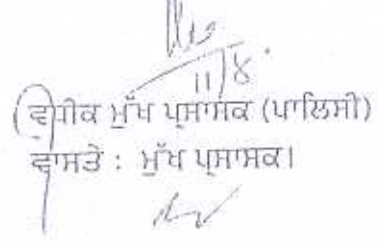 11/8.
ਵਧੀਕ ਮੁੱਖ ਪ੍ਰਸਾਸਕ (ਪਾਲਿਸੀ)
ਵਾਸਤੇ : ਮੁੱਖ ਪ੍ਰਸਾਸਕ।